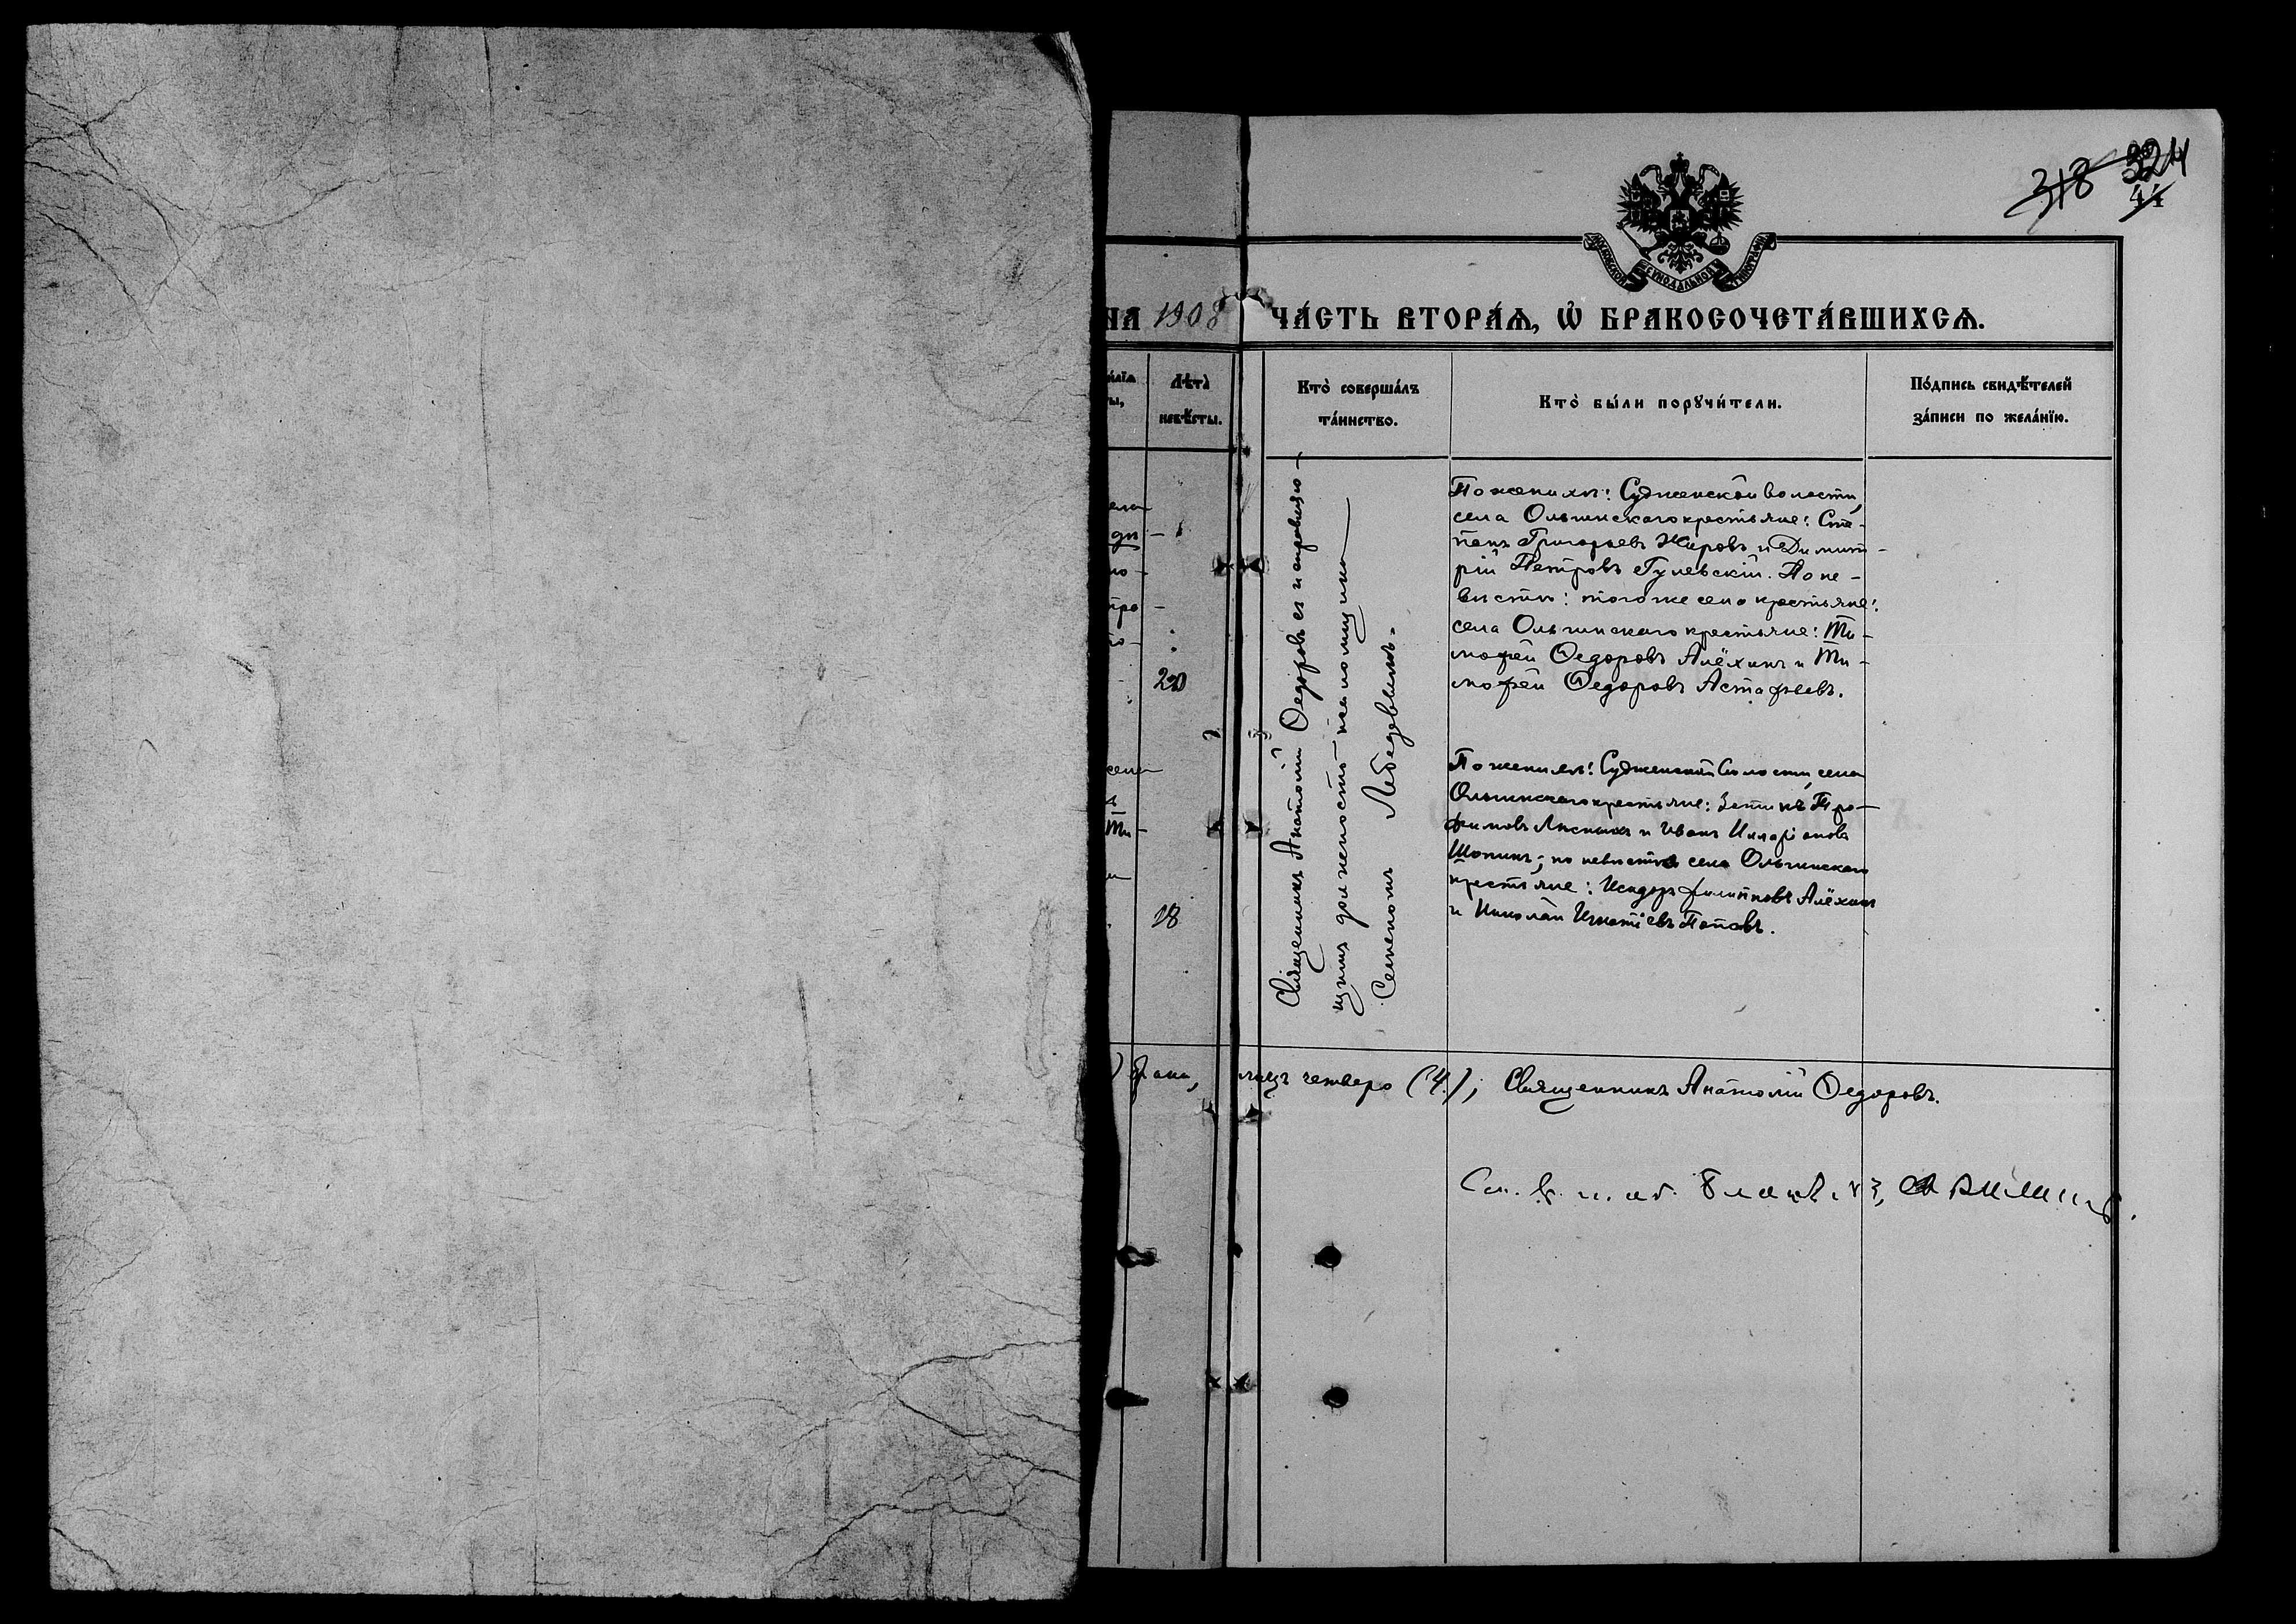 318 324
44
МОСКОВСКОЙ СѴНОДАЛЬНОЙ ТИПОГРАФІИ
НА 1908
ЧА́СТЬ ВТОРА́Ѧ, Ѽ БРАКОСОЧЕТА́ВШИХСѦ.
Лѣта̀
невѣ́сты.
Кто̀ соверша́лъ
та́инство.
Кто̀ бы́ли порꙋчи́тели.
По́дпись свидѣ́телей
за́писи по жела́нїю.
20
18
Священникъ Анатолій Ѳедоровъ съ исправляю-
щимъ должность псаломщика
Семеномъ Лебедевымъ.
По женихѣ: Судженской волости,
села Ольгинскаго крестьяне: Сте-
панъ Григорьевъ Жировъ и Димит-
рій Петровъ Гулевскій. По не-
вѣстѣ: того же села крестьяне:
села Ольгинскаго крестьяне: Ти-
моѳей Ѳедоровъ Алёхинъ и Ти-
моѳей Ѳедоровъ Астафьевъ.
По женихѣ: Судженской волости, села
Ольгинскаго крестьяне: Тро-
фимовъ и Иванъ Иларіоновъ
Шопинъ; по невѣстѣ села Ольгинскаго
крестьяне: Исидоръ Филипповъ Алёхинъ
и Николай Игнатіевъ Поповъ.
брака, лицъ четверо (4); Священникъ Анатолій Ѳедоровъ.